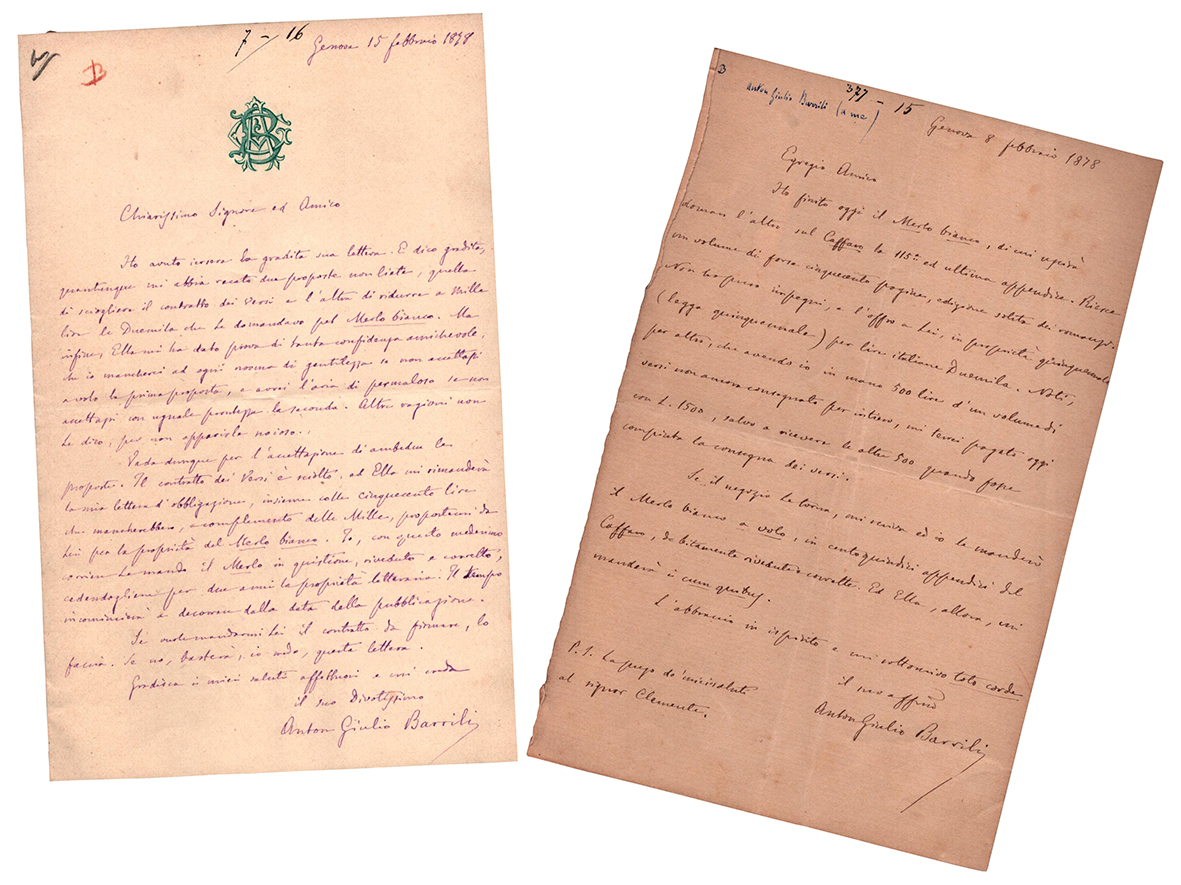 7 - 16
Genova 15 febbraio 1878
B
Chiarissimo Signore ed Amico
Ho avuto iersera la gradita sua lettera. E dico gradita,
quantunque mi abbia recato due proposte non liete, quella
di sciogliere il contratto dei Versi e l'altra di ridurre a Mille
lire le Duemila che Le domandavo pel Merlo bianco. Ma
infine, Ella mi ha dato prova di tanta confidenza amichevole,
che io mancherei ad ogni norma di gentilezza se non accettassi
a volo la prima proposta, e avrei l'aria di permaloso se non
accettassi con uguale prontezza la seconda. Altre ragioni non
Le dico, per non apparirle noioso.
Vada dunque per l'accettazione di ambedue le
proposte. Il contratto dei Versi è sciolto, ed Ella mi rimanderà
la mia lettera d'obbligazione, insieme colle cinquecento lire
che mancherebbero, a complemento delle Mille, propostemi da
Lei per la proprietà del Merlo bianco. Io, con questo medesimo
corriere Le mando il Merlo in questione, riveduto e corretto,
cedendogliene per due anni la proprietà letteraria. Il tempo
incomincierà a decorrere dalla data della pubblicazione.
Se vuole mandarmi Lei il contratto da firmare, lo
faccia. Se no, basterà, io credo, questa lettera.
Gradisca i miei saluti affettuosi e mi creda
il suo Divotissimo
Anton Giulio Barrili
B
377 - 15
Anton Giulio Barrili (a me)
Genova 8 febbraio 1878
Egregio Amico
Ho finito oggi il Merlo bianco, di cui uscirà
doman l'altro sul Caffaro la 115ª ed ultima appendice. Riesce
un volume di forse cinquecento pagine, edizione solita dei romanzi.
Non ho preso impegni, e l'offro a Lei, in proprietà quinquennale
(legga quinquennale) per lire italiane Duemila. Noti,
per altro, che avendo io in mano 500 lire d'un volume di
versi non ancora consegnato per intiero, mi terrei pagato oggi
con L. 1500, salvo a ricevere le altre 500 quando fosse
compiuta la consegna dei versi.
Se il negozio Le torna, mi scriva ed io Le manderò
il Merlo bianco a volo, in centoquindici appendici del
Caffaro, debitamente rivedute e corrette. Ed Ella, allora, mi
manderà i cum quibus.
L'abbraccio in ispirito e mi sottoscrivo toto corde
il suo affmo
Anton Giulio Barrili
P. S. La prego de' miei saluti
al signor Clemente.